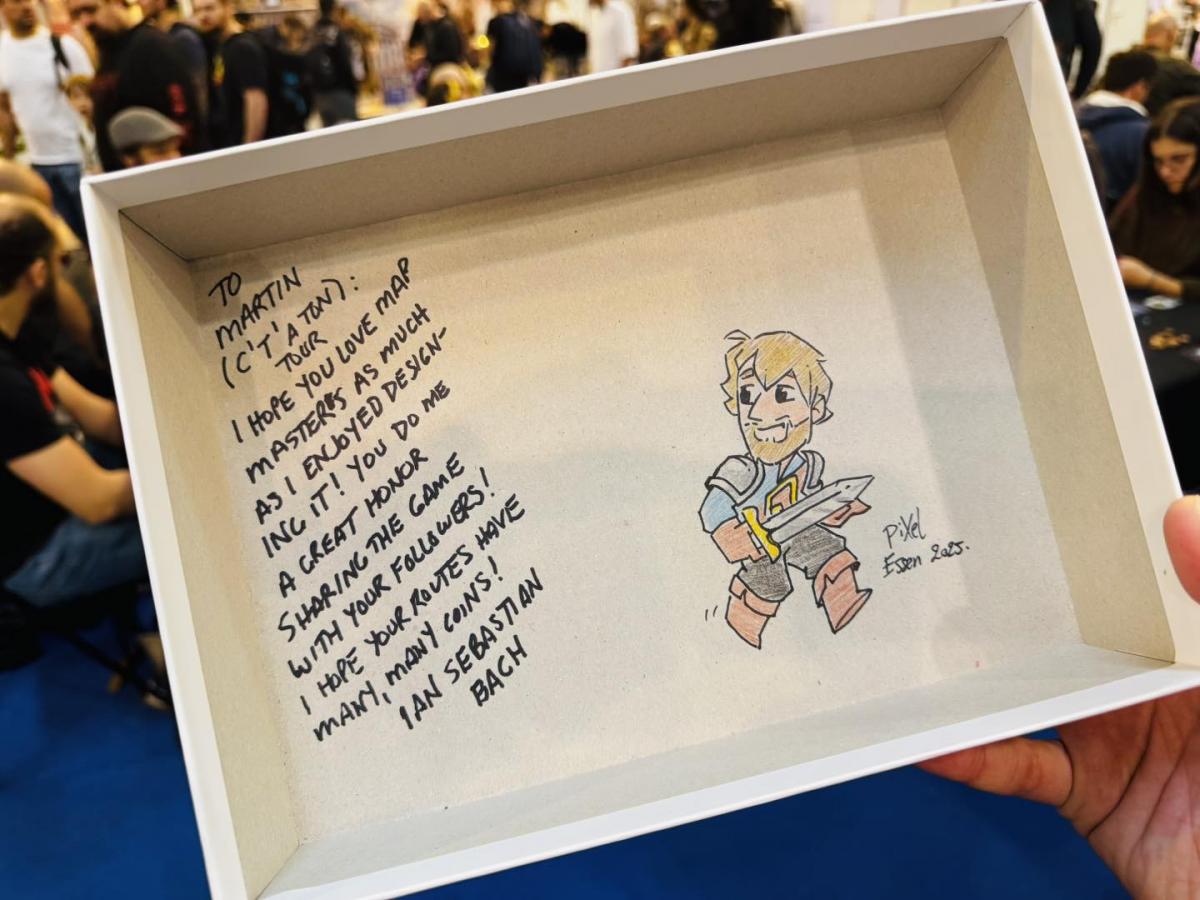 TO
MARTIN
(C'T'A TON):
TOUR
I HOPE YOU LOVE MAP
MASTERES AS MUCH
AS I ENJOYED DESIGN-
ING IT! YOU DO ME
A GREAT HONOR
SHARING THE GAME
WITH YOUR FOLLOWERS!
I HOPE YOUR ROUTES HAVE
MANY, MANY COINS!
IAN SEBASTIAN
BACH
PiXel
Essen 2025.